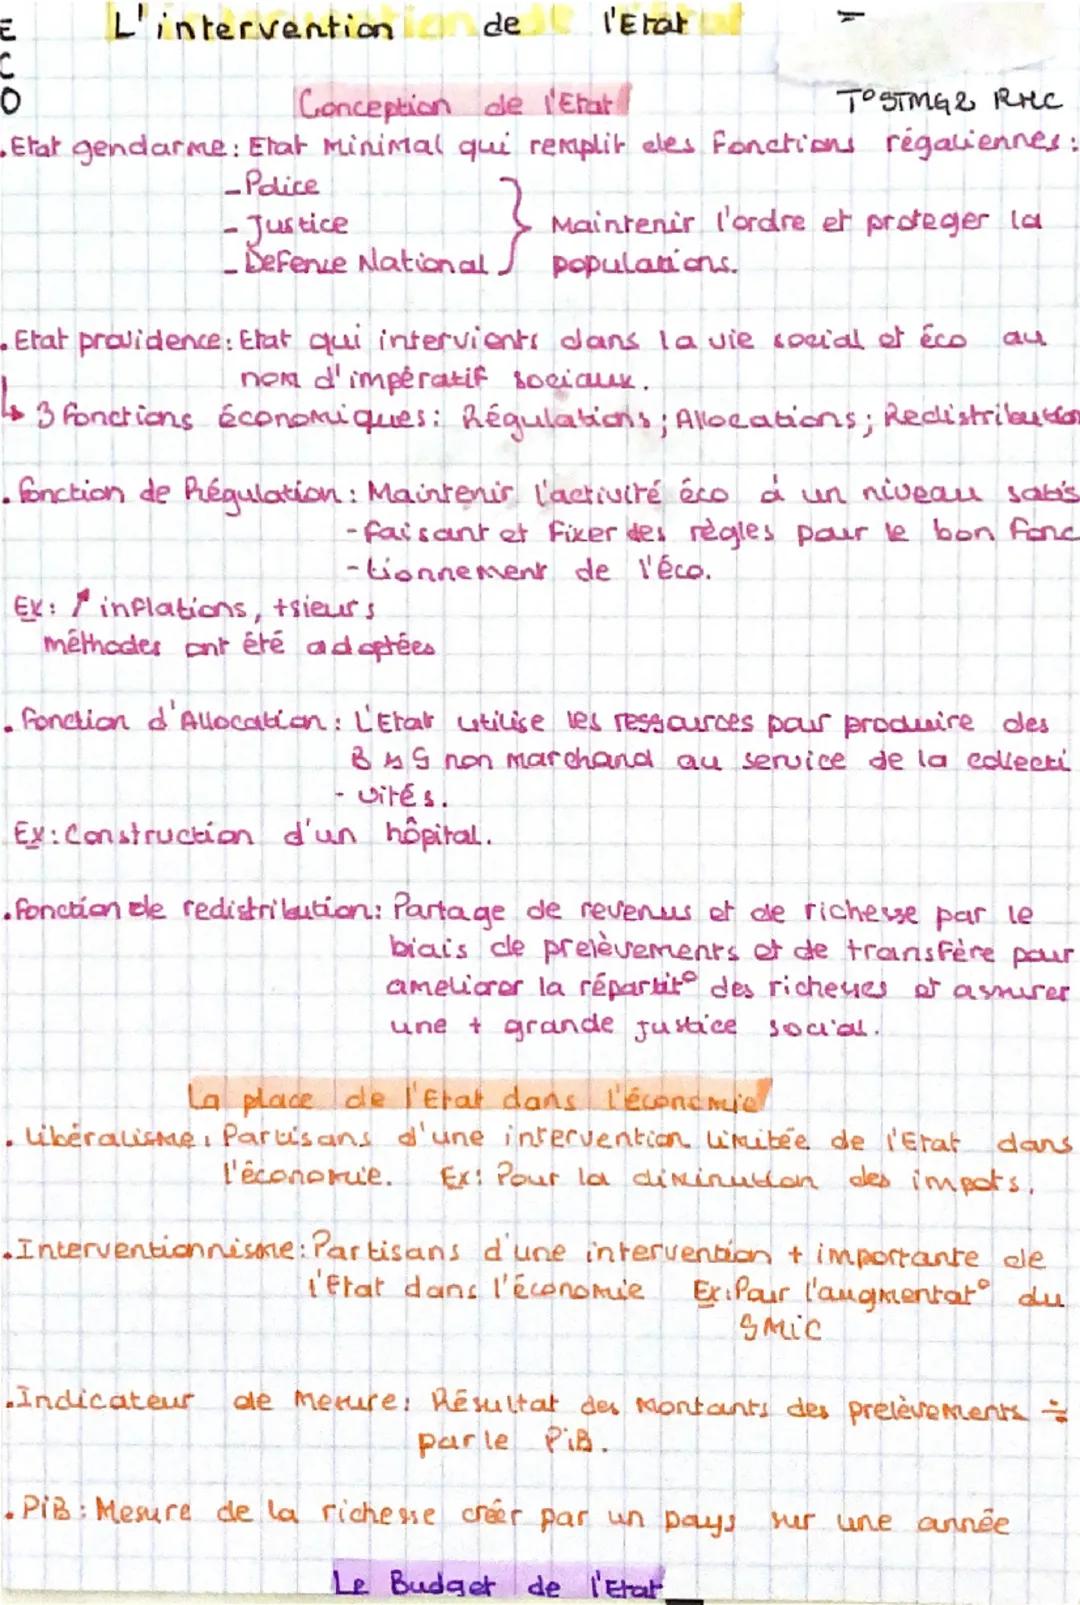 ECO
L'intervention de l'Etat
Conception de l'Etat
T°STMG2 RHC
.Etat gendarme: Etat minimal qui remplit des fonctions régaliennes:
-Police
-Justice
-Defense National
Maintenir l'ordre et proteger la
populations.
.Etat providence: Etat qui intervients dans la vie social et éco au
nom d'impératif sociaux.
↳ 3 fonctions économiques: Régulations; Allocations; Redistribution
.fonction de Régulation: Maintenir l'activité éco à un niveau satis
-faisant et fixer des règles pour le bon fonc
-tionnement de l'éco.
Ex: ↗ inflations, +sieurs
méthodes ont été adoptées
.fonction d'Allocation: L'Etat utilise les ressources pour produire des
B & S non marchand au service de la collecti
-vités.
Ex: Construction d'un hôpital.
.fonction de redistribution: Partage de revenus et de richesse par le
biais de prelèvements et de transfère pour
ameliorer la répartit° des richesses et assurer
une + grande justice social.
La place de l'Etat dans l'économie
.Libéralisme: Partisans d'une intervention limitée de l'Etat dans
l'économie. Ex: Pour la diminution des impots.
.Interventionnisme: Partisans d'une intervention + importante de
l'Etat dans l'économie Ex: Pour l'augmentat° du
SMIC
.Indicateur de mesure: Résultat des montants des prelèvements ÷
par le PiB.
.PiB: Mesure de la richesse créér par un pays sur une année
Le Budget de l'Etat